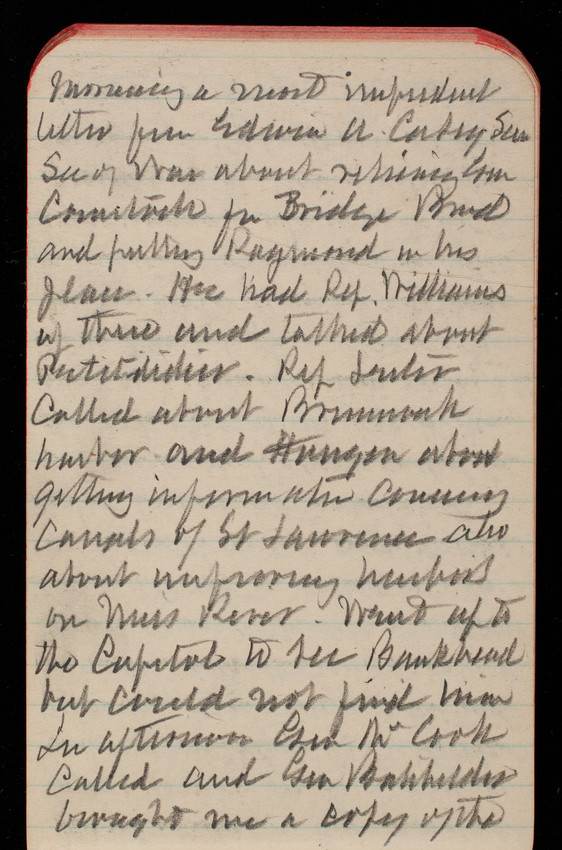 morning a most impudent
letter from Edwin A.
Sec of War about relieving Gen
Comstock from Bridge Board
and putting Raymond in his
place. He had Rep. Williams
up there and talked about
Petitdidier. Rep Lester
Called about Brunswick
harbor and about
getting information concerning
Canals of St Lawrence also
about improving harbors
on Miss River. Went up to
the Capitol to see Bankhead
but could not find him
In afternoon Gen McCook
Called and Gen Batchelder
brought me a copy of the